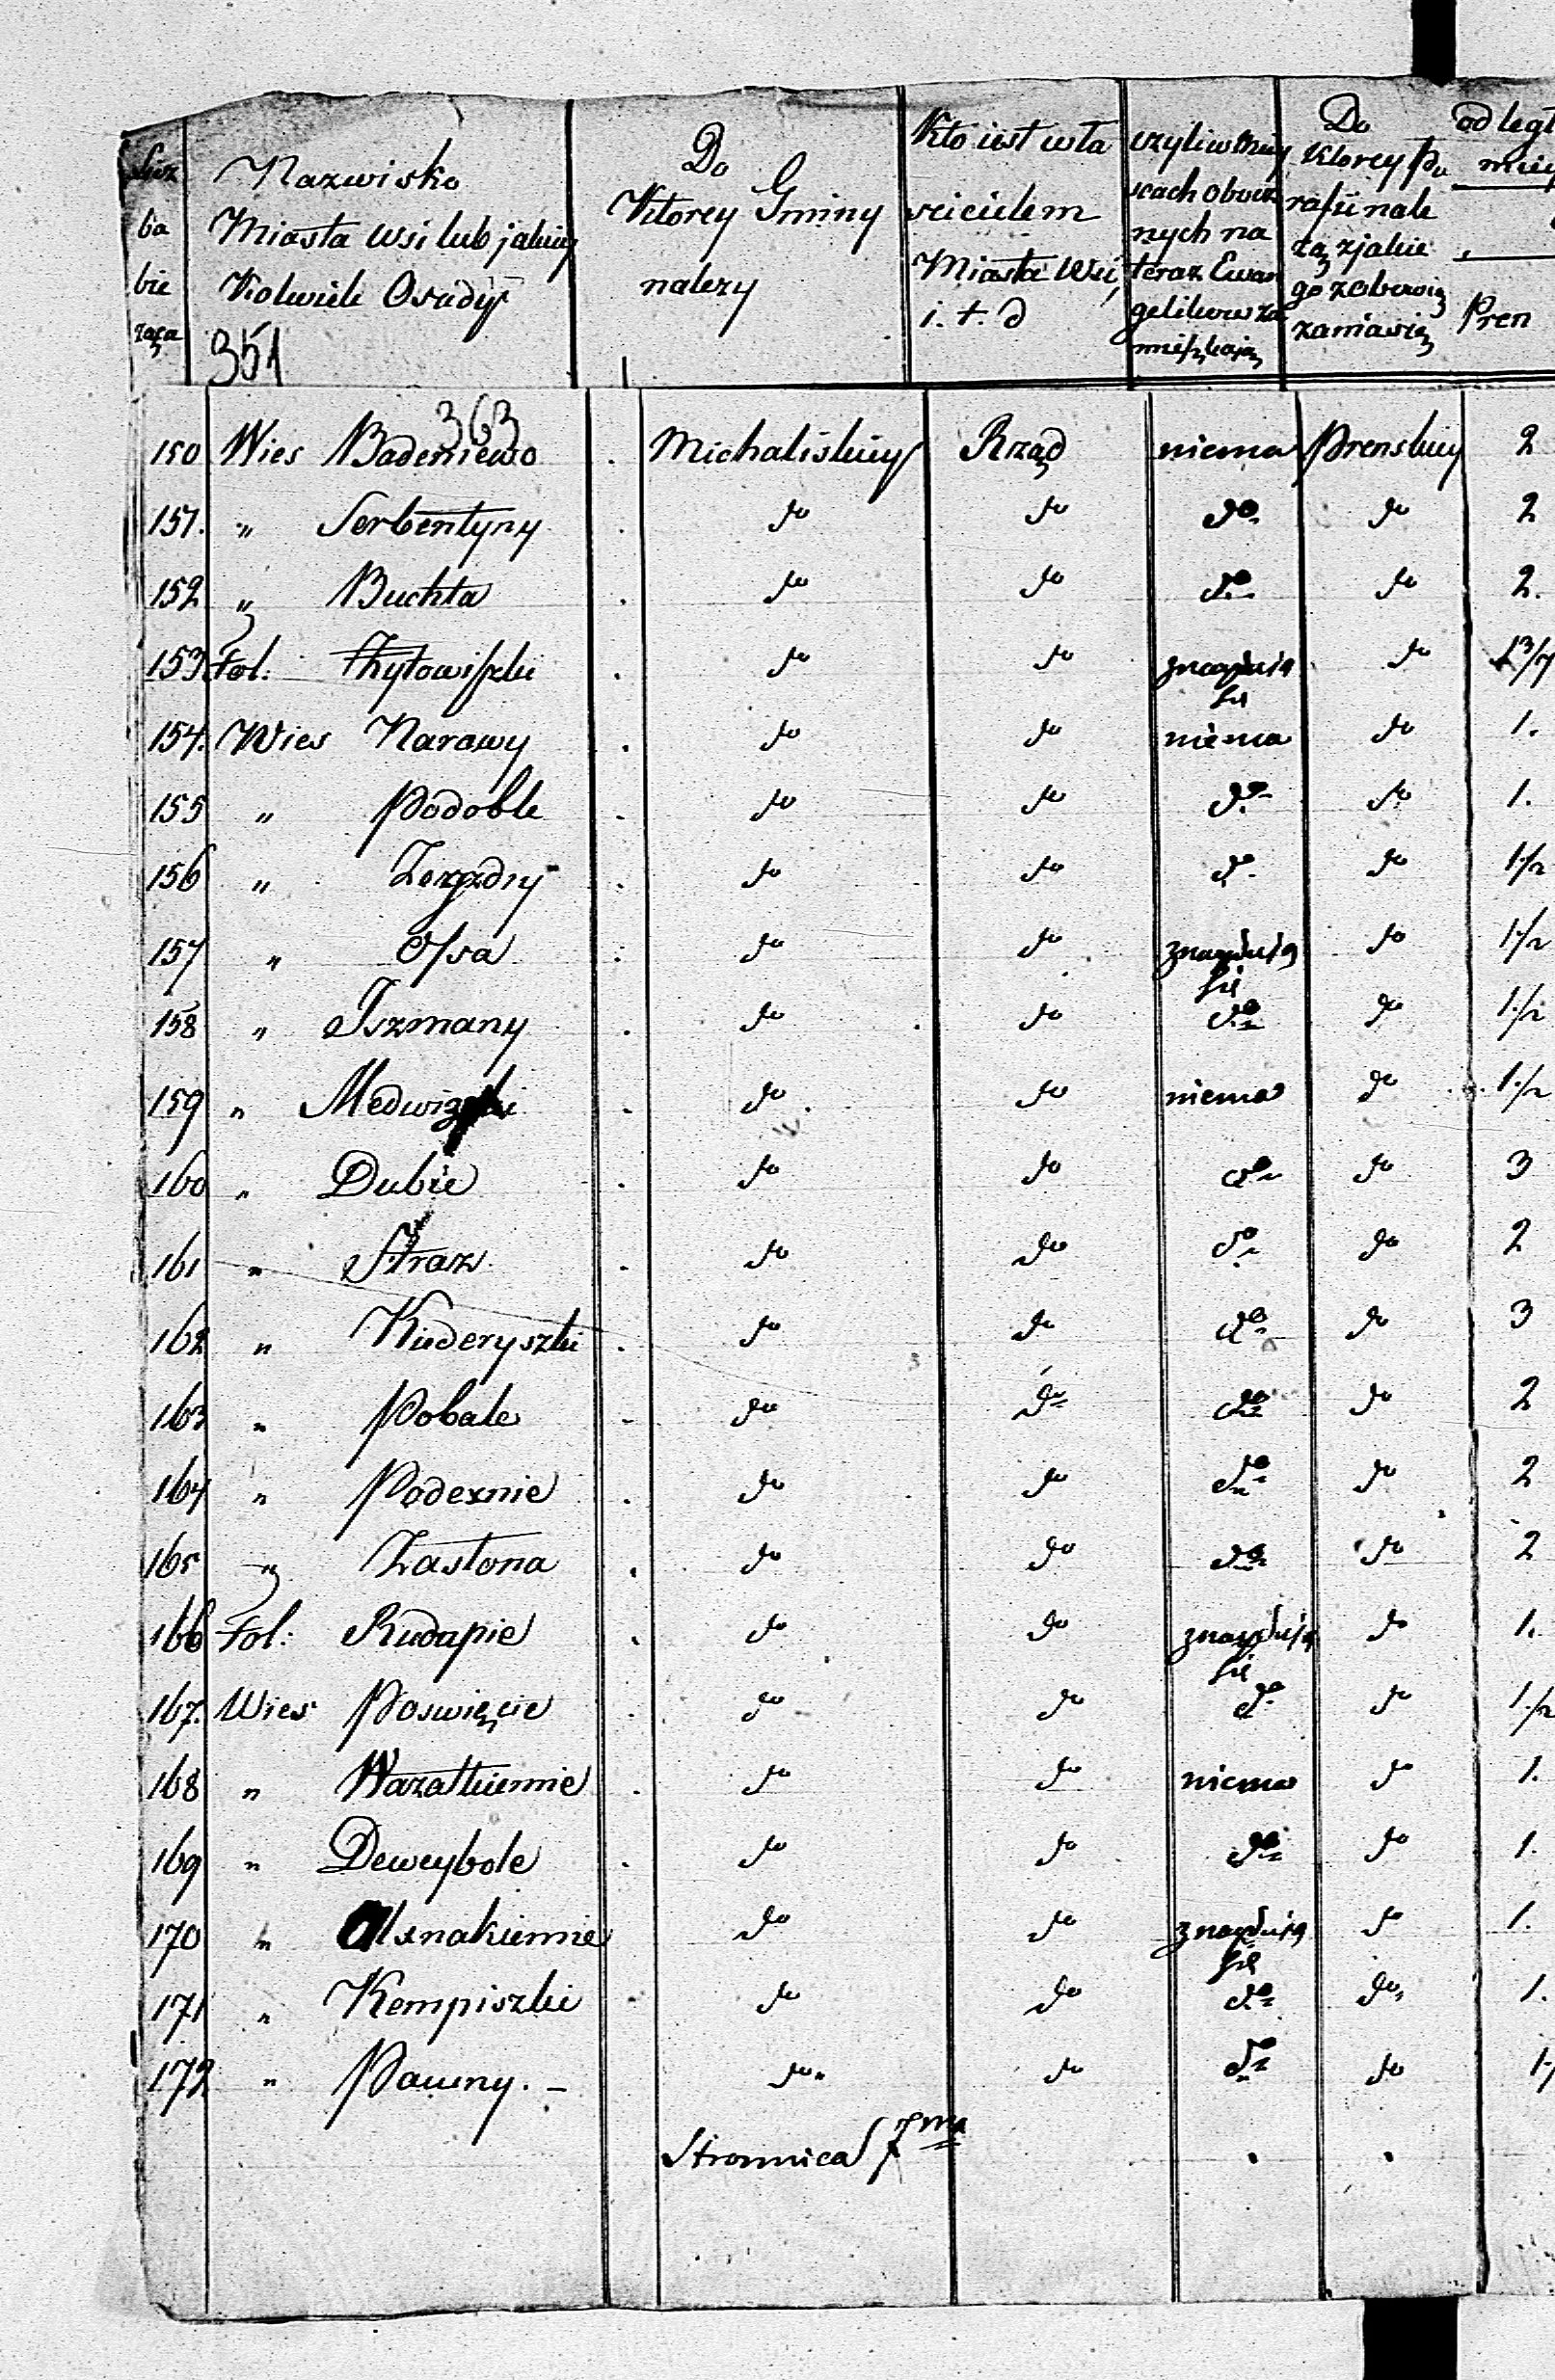 Licz ba bie żąca | Nazwisko Miasta wsi lub jakiey Kolwiek Osady | Do Ktorey Gminy nalezy | Kto iest wła scicielem Miasta Wsi i. t. d | czyli w mieyscach obocznych na teraz Ewan gelikow za mieszkaią | Do Ktorey Pa rafii nale zą z jakie go zobowią zania się | odległ miey Pren
351
363
150 Wies Badeniewo . Michaliskiey Rząd niema Prenskiey 2
151. " Serbentyny . do do do do 2
152 " Buchta . do do do do 2.
153 Fol: Zytowiszki . do do znayduią się do 1 3/4
154. Wies Narawy . do do niema do 1.
155 " Podoble . do do do do 1.
156 " Zegzdry . do do do do 1 1/2
157 " Ossa . do do znayduią się do 1 1/2
158 " Iszmany . do do do do 1 1/2
159 " Medwiszki . do do niema do 1 1/2
160 " Dubie . do do do do 3
161 " Straz . do do do do 2
162 " Kuderyszki . do do do do 3
163 " Pobale . do do do do 2
164 " Podexnie . do do do do 2
165 " Zastona . do do do do 2
166 Fol: Rudapie . do do znayduią się do 1.
167. Wies Poswięcie . do do do do 1 1/2
168 " Wazatkiemie . do do niema do 1.
169 " Deweybole . do do do do 1.
170 " Alxnakiemie do do znayduią się do 1.
171 " Kempiszki do do do do 1.
172 " Pawny. - do do do do 1
Stronnica 7ma